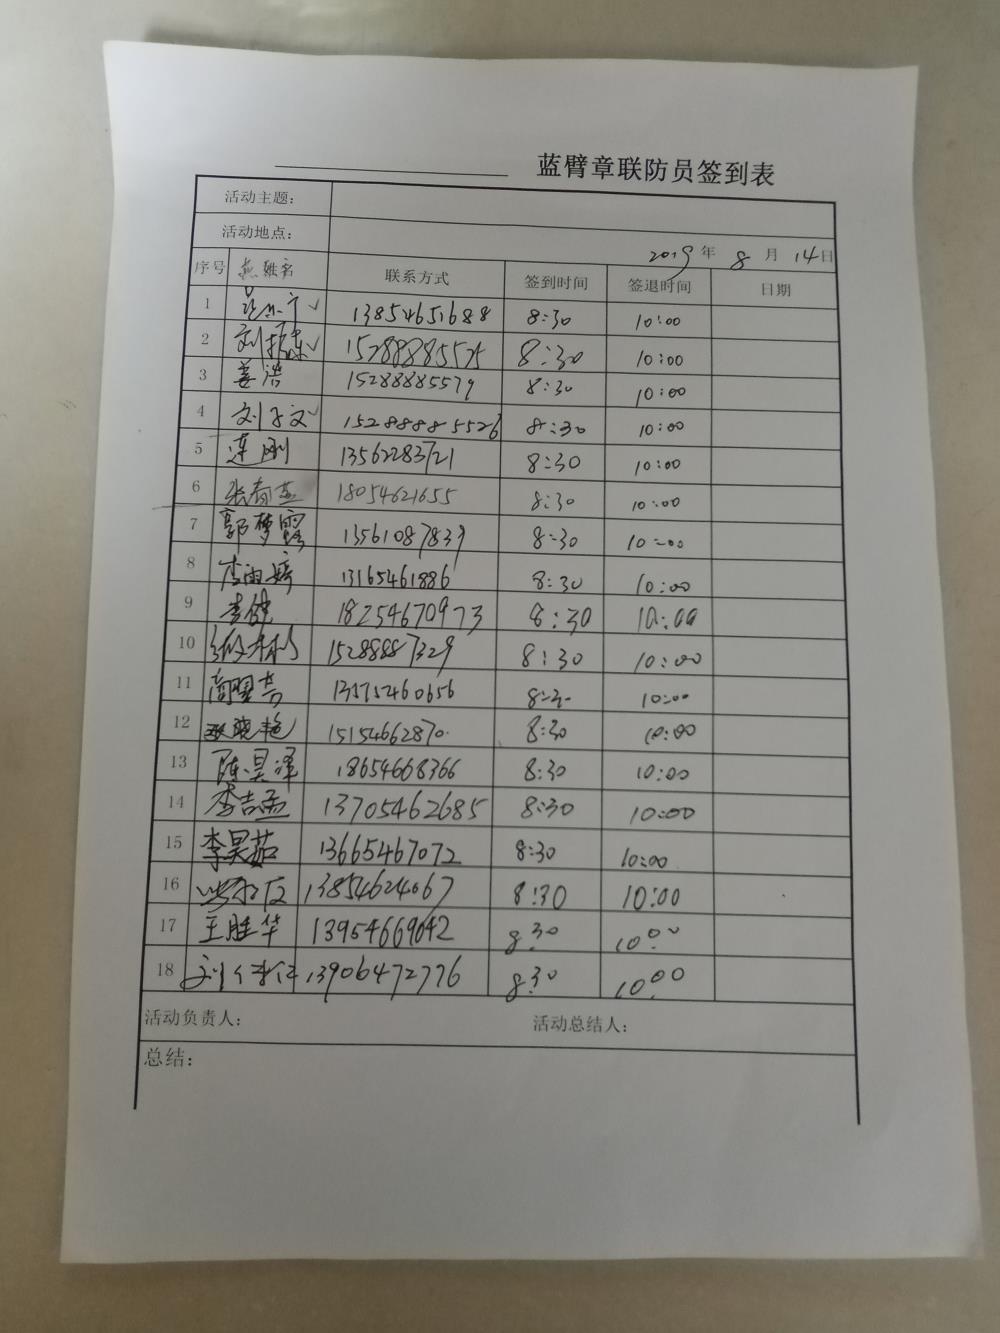 蓝臂章联防员签到表
活动主题：
活动地点：
2019年 8月 14日
序号 姓名 联系方式 签到时间 签退时间 日期
1 13854651688 8:30 10:00
2 刘振东 15288885525 8:30 10:00
3 姜浩 15288885579 8:30 10:00
4 刘子文 15288885526 8:30 10:00
5 连刚 13562283721 8:30 10:00
6 18054621655 8:30 10:00
7 郭梦露 13561087839 8:30 10:00
8 李雨婷 13165461886 8:30 10:00
9 李健 18254670973 8:30 10:00
10 15288887329 8:30 10:00
11 13575460656 8:30 10:00
12 15154662870 8:30 10:00
13 陈昊泽 18654668366 8:30 10:00
14 李吉孟 13705462685 8:30 10:00
15 李昊茹 13665467072 8:30 10:00
16 13854624067 8:30 10:00
17 王胜华 13954669042 8:30 10:00
18 13906472776 8:30 10:00
活动负责人： 活动总结人：
总结：